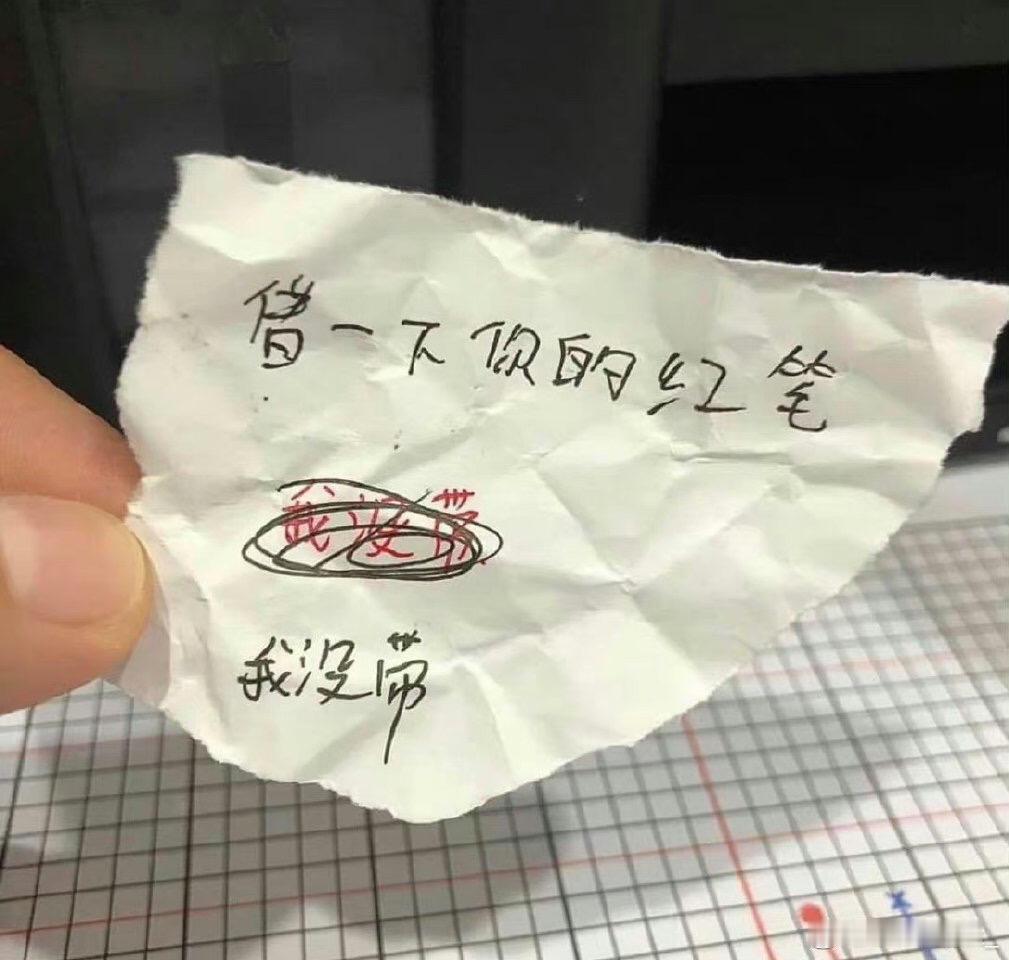 借一下你的红笔
我没带
我没带